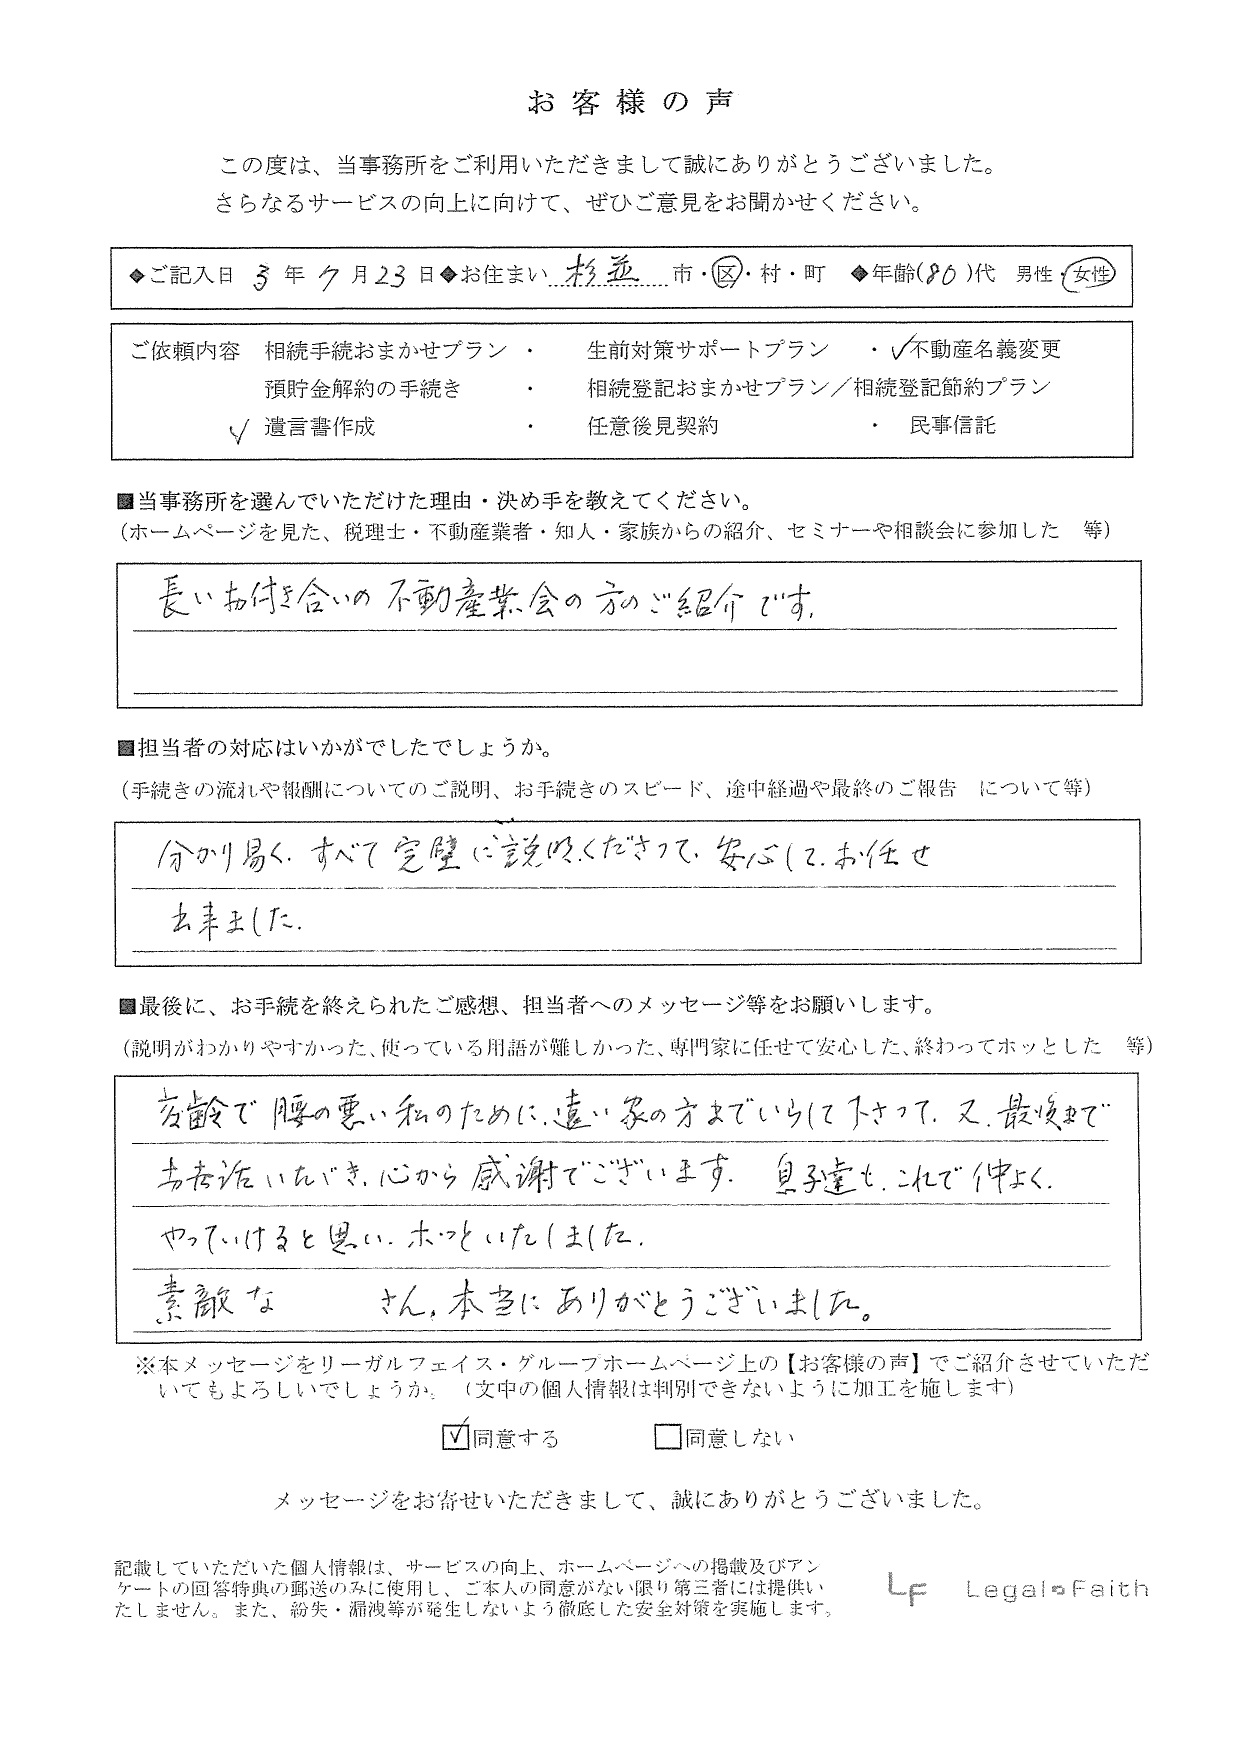 お客様の声
この度は、当事務所をご利用いただきまして誠にありがとうございました。
さらなるサービスの向上に向けて、ぜひご意見をお聞かせください。
◆ご記入日 3年7月23日◆お住まい 杉並 市・区・村・町 ◆年齢(80)代 男性・女性
ご依頼内容 相続手続おまかせプラン ・ 生前対策サポートプラン ・✓不動産名義変更
預貯金解約の手続き ・ 相続登記おまかせプラン/相続登記節約プラン
✓ 遺言書作成 ・ 任意後見契約 ・ 民事信託
■当事務所を選んでいただけた理由・決め手を教えてください。
(ホームページを見た、税理士・不動産業者・知人・家族からの紹介、セミナーや相談会に参加した 等)
長いお付き合いの不動産業会の方のご紹介です。
■担当者の対応はいかがでしたでしょうか。
(手続きの流れや報酬についてのご説明、お手続きのスピード、途中経過や最終のご報告 について等)
分かり易く、すべて完璧に説明くださって、安心して、お任せ
出来ました。
■最後に、お手続を終えられたご感想、担当者へのメッセージ等をお願いします。
(説明がわかりやすかった、使っている用語が難しかった、専門家に任せて安心した、終わってホッとした 等)
高齢で腰の悪い私のために、遠い家の方までいらして下さって、又、最後まで
お世話いただき、心から感謝でございます。息子達も、これで仲よく、
やっていけると思い、ホッといたしました。
素敵な さん、本当にありがとうございました。
※本メッセージをリーガルフェイス・グループホームページ上の【お客様の声】でご紹介させていただ
いてもよろしいでしょうか。(文中の個人情報は判別できないように加工を施します)
☑同意する □同意しない
メッセージをお寄せいただきまして、誠にありがとうございました。
記載していただいた個人情報は、サービスの向上、ホームページへの掲載及びアン
ケートの回答特典の郵送のみに使用し、ご本人の同意がない限り第三者には提供い
たしません。また、紛失・漏洩等が発生しないよう徹底した安全対策を実施します。
LF Legal Faith